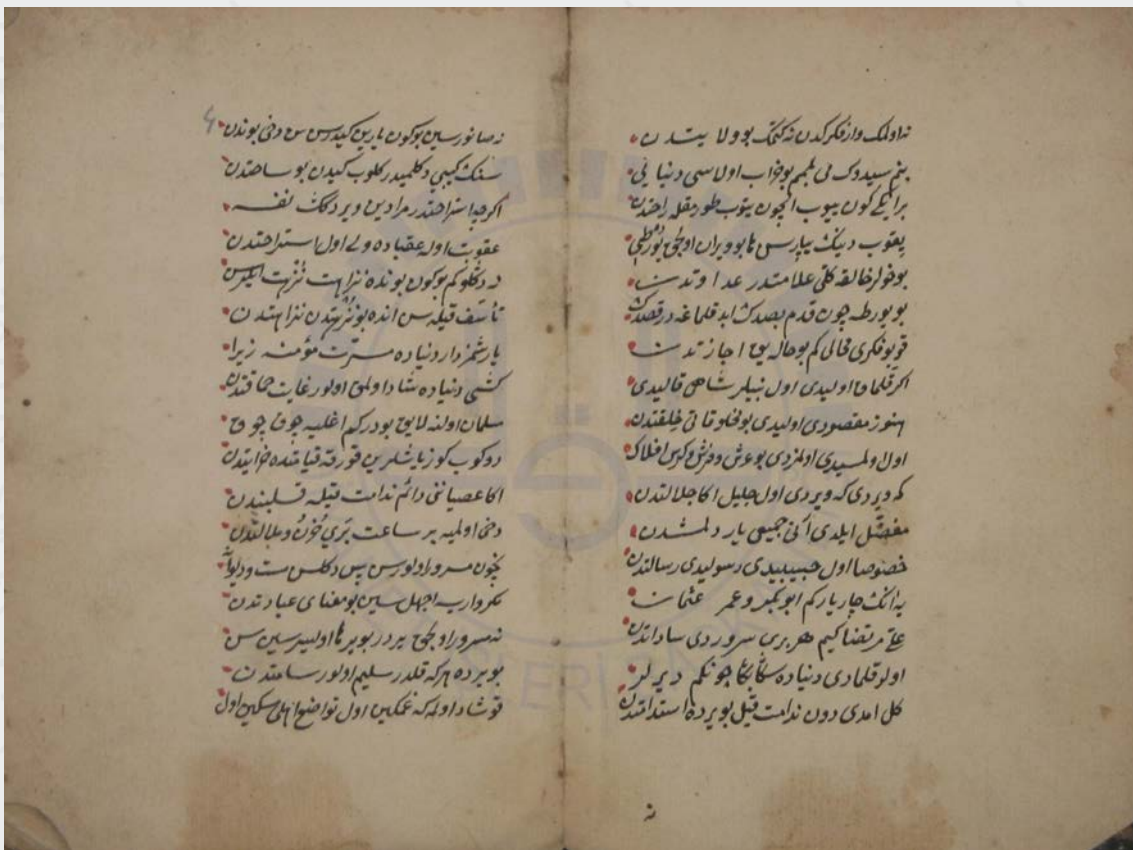 نه اولمك وار فكركدن نه كتمك بو ولايتدن
بو خولر خالقه كلی علامتدر عداوتدن
بو بورطه چون قدم بصدك ابد قلماغه در قصدك
قو بو فكری محالی كم بو حاله یوق اجازتدن
اكر قلمق اولیدی اول نبیلر شاهی قالیدی
هنوز مقصودی اولیدی بو مخلوقاتی خلقتدن
اول اولمسیدی اولمزدی بو عرش و فرش و كرسی افلاك
كه ویردی كه ویردی اول جلیل اكا جلالتدن
مفضل ایلدی آنی جمیعی یارادلمشدن
خصوصا اول حبیبیدی رسولیدی رسالتدن
یه انك چار یار كم ابو بكر و عمر عثمان
علی مرتضا كیم هر بری سروردی ساداتدن
اولر قلمادی دنیاده سكا بكا چونكم دیرلر
كل امدی دون ندامت قیل بو یرده استدامتدن
نه
نه صانورسین بوكون یارین كیدرسن سن دخی بوندن
سنك كیبی دكلمیدر كلوب كیدن بو ساحتدن
اكرچه استراحتدر مرادین ویردكك نفسه
عقوبت اوله عقباده ولی اول استراحتدن
نه دكلو كم بوكون بونده نزاهت نزهت ایلرسن
تأسف قیله سن انده بو نزهتدن نزاهتدن
یارشمز دار دنیاده مسرت مؤمنه زیرا
كشی دنیاده شاد اولمق اولور غایت حماقتدن
مسلمان اولنه لایق بودركم اغلیه چوق چوق
دوكوب كوز یاشلرین قورقه قیامتده غرامتدن
اكا عصیاننی دائم ندامت قیله قلبندن
دخی اولمیه بر ساعت بری حزن و ملالتدن
نچون مسرور اولورسن پس دكلسن مست و دیوانه
مكر وار یه اجهل سین بو معنای عبادتدن
نه مسرور اوله جق یردر بو یر ها اولسیرسین سن
بو یرده هر كه قلدر سلیم اولور سامتدن
قو شاد اولمه كه غمكین اول تواضع اهلی مسكین اول